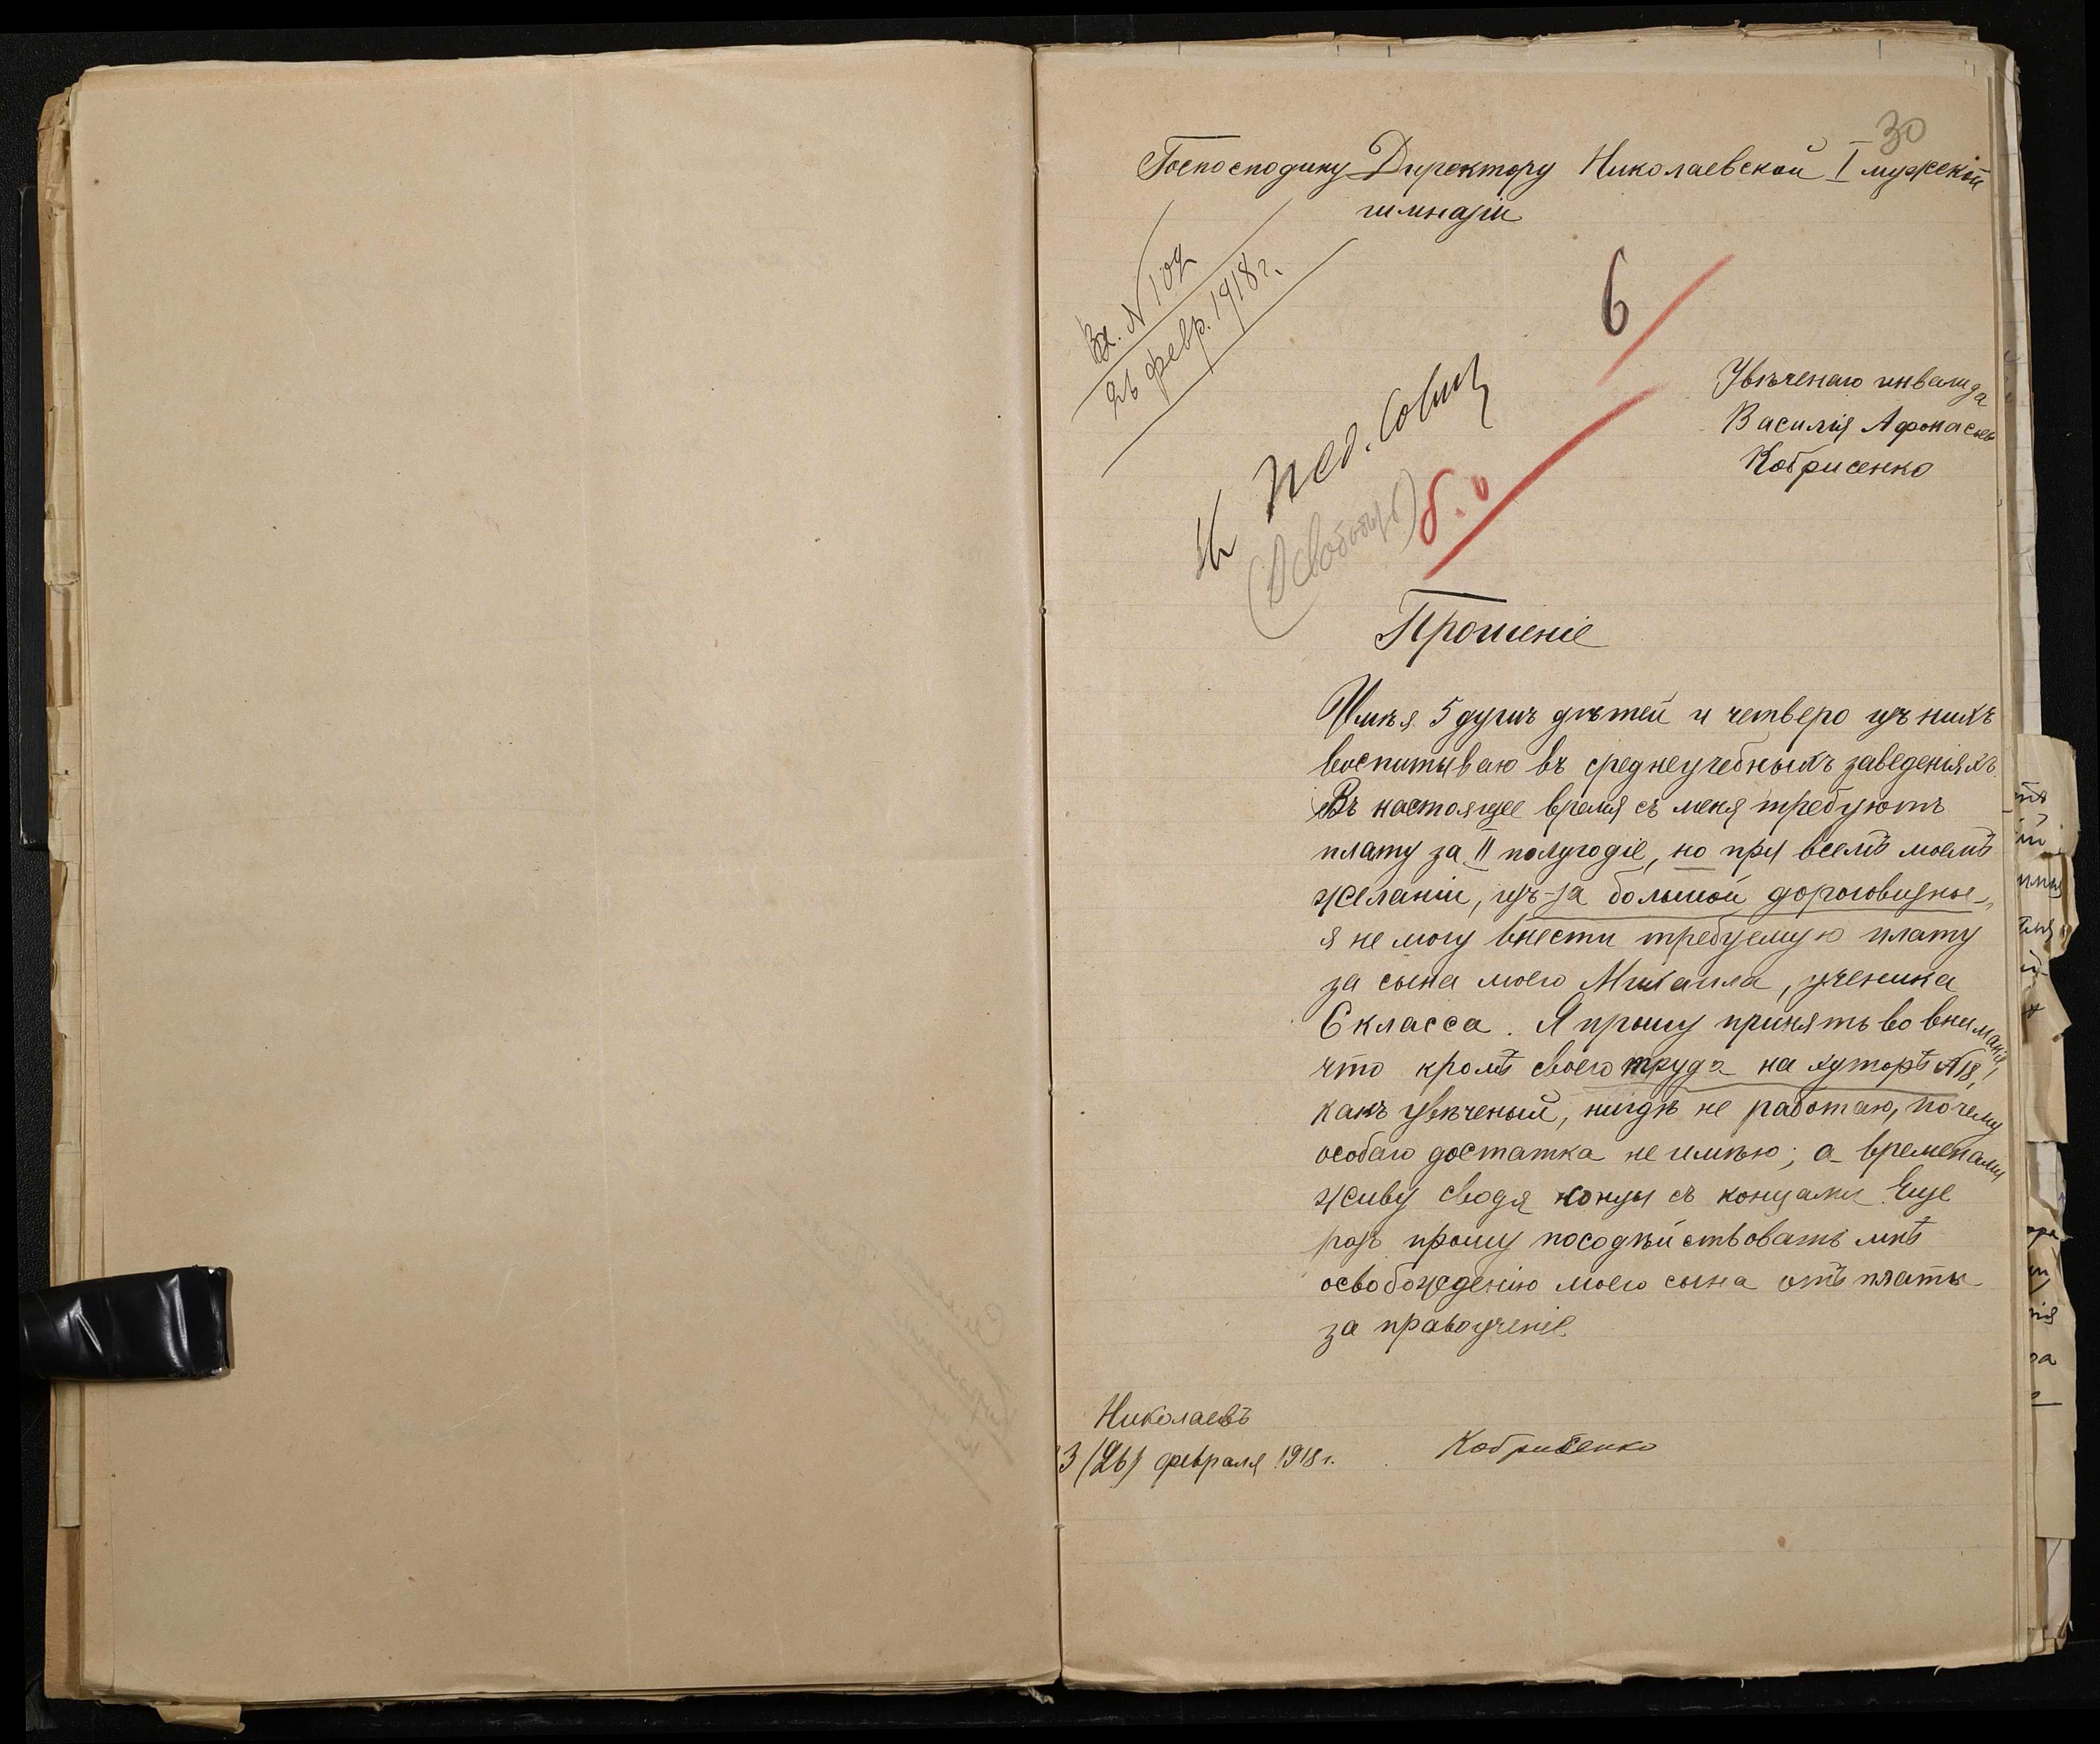 30
Госпосподину Директору Николаевской I мужской
гимназіи
Вх. N 109
26 февр. 1918 г.
6
Увѣченаго инвалида
Василія Афонасьев
Кобрисенко
Въ пед. Совѣтъ
(Освободить)
б. о
Прошеніе
Имѣя 5 душъ дѣтей и четверо изъ нихъ
воспитываю въ среднеучебныхъ заведеніяхъ.
Въ настоящее время съ меня требуютъ
плату за II полугодіе, но при всемъ моемъ
желаніи, изъ-за большой дороговизны,
я не могу внести требуемую плату
за сына моего Михаила, ученика
6 класса. Я прошу принять во вниманіе,
что кромѣ своего труда на хуторѣ N18,
какъ увѣченый, нигдѣ не работаю, почему
особаго достатка не имѣю; а временами
живу сводя концы съ концами. Еще
разъ прошу посодѣйствовать мнѣ
освобожденію моего сына отъ платы
за правоученіе.
Николаевъ
13 (26) февраля 1918 г.
Кобрисенко